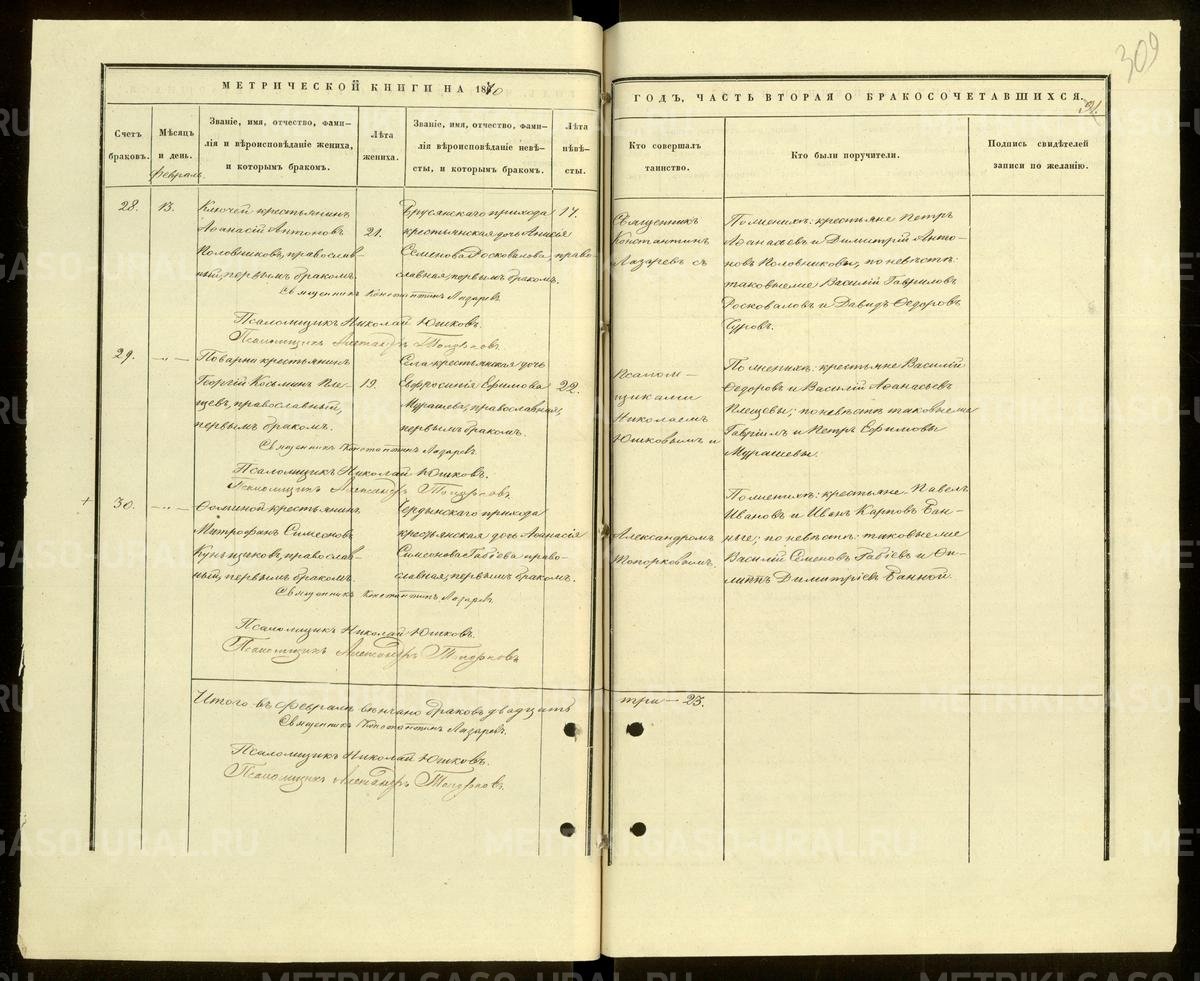 309
МЕТРИЧЕСКОЙ КНИГИ НА 1880
ГОДЪ, ЧАСТЬ ВТОРАЯ О БРАКОСОЧЕТАВШИХСЯ.
Счетъ браковъ.
Мѣсяцъ и день.
Званіе, имя, отчество, фами-
лія и вѣроисповѣданіе жениха,
и которымъ бракомъ.
Лѣта жениха.
Званіе, имя, отчество, фами-
лія и вѣроисповѣданіе невѣ-
сты, и которымъ бракомъ.
Лѣта невѣ-
сты.
Кто совершалъ
таинство.
Кто были поручители.
Подпись свидѣтелей
записи по желанію.
Февраль.
28.
13.
Ключей крестьянинъ
Аѳанасій Антоновъ
Половниковъ, православ-
ный, первымъ бракомъ.
21.
Брусянскаго прихода
крестьянская дочь Анисія
Семенова Росковалова, право-
славная, первымъ бракомъ.
17.
Священникъ Константинъ Лазаревъ
Псаломщикъ Николай Юшковъ.
Псаломщикъ Александръ Топорковъ
Священникъ
Константинъ
Лазаревъ съ
По женихѣ: крестьяне Петръ
Аѳанасьевъ и Димитрій Анто-
новъ Половниковы, по невѣстѣ:
таковые же Василій Гавриловъ
Росковаловъ и Давидъ Ѳедоровъ
Суровъ.
29.
— „ —
Поварни крестьянинъ
Георгій Косьминъ Пле-
щевъ, православный,
первымъ бракомъ.
19.
Села крестьянская дочь
Евфросинія Ефимова
Мурашева, православная,
первымъ бракомъ.
22.
Священникъ Константинъ Лазаревъ
Псаломщикъ Николай Юшковъ.
Псаломщикъ Александръ Топорковъ
Псалом-
щиками
Николаемъ
Юшковымъ и
По женихѣ: крестьяне Василій
Ѳедоровъ и Василій Аѳанасьевъ
Плещевы; по невѣстѣ таковые же
Гавріилъ и Петръ Ефимовы
Мурашевы.
+
30.
— „ —
Ѳоминой крестьянинъ
Митрофанъ Симеоновъ
Кунгщиковъ, православ-
ный, первымъ бракомъ.
прихода
крестьянская дочь Аѳанасія
Симеонова право-
славная, первымъ бракомъ.
Священникъ Константинъ Лазаревъ
Псаломщикъ Николай Юшковъ.
Псаломщикъ Александръ Топорковъ
Александромъ
Топорковымъ.
По женихѣ: крестьяне Павелъ
Ивановъ и Иванъ Карповъ Бан-
ные; по невѣстѣ: таковые же
Василій Семеновъ и Фи-
липпъ Димитріевъ Банной
Итого въ Февралѣ вѣнчано браковъ двадцать
три — 23.
Священникъ Константинъ Лазаревъ.
Псаломщикъ Николай Юшковъ.
Псаломщикъ Александръ Топорковъ
METRIKI.GASO-URAL.RU